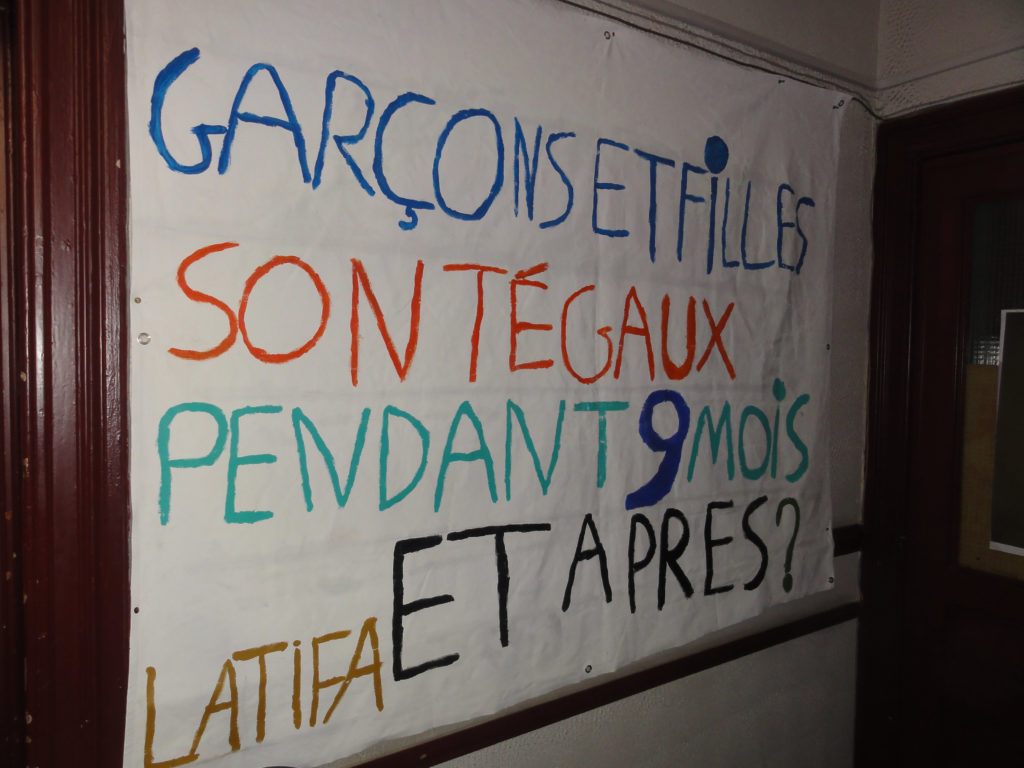 GARÇONS ET FiLLES
SONT ÉGAUX
PENDANT 9 MOiS
ET APRES?
LATiFA